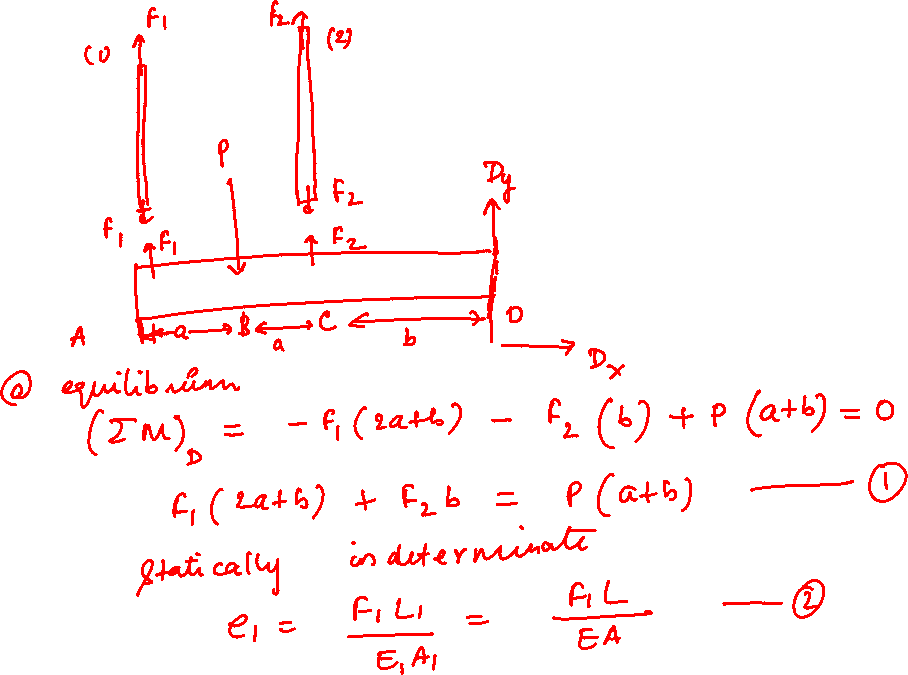 F₁ F₂
(1) (2)
P Dy
F₁ F₁ F₂
F₂
A a B a C b D
Dx
ⓐ equilibrium
(ΣM)_D = - F₁ (2a+b) - F₂ (b) + P (a+b) = 0
F₁ (2a+b) + F₂ b = P (a+b) —— ①
Statically indeterminate
e₁ = F₁ L₁ / E₁ A₁ = F₁ L / EA —— ②